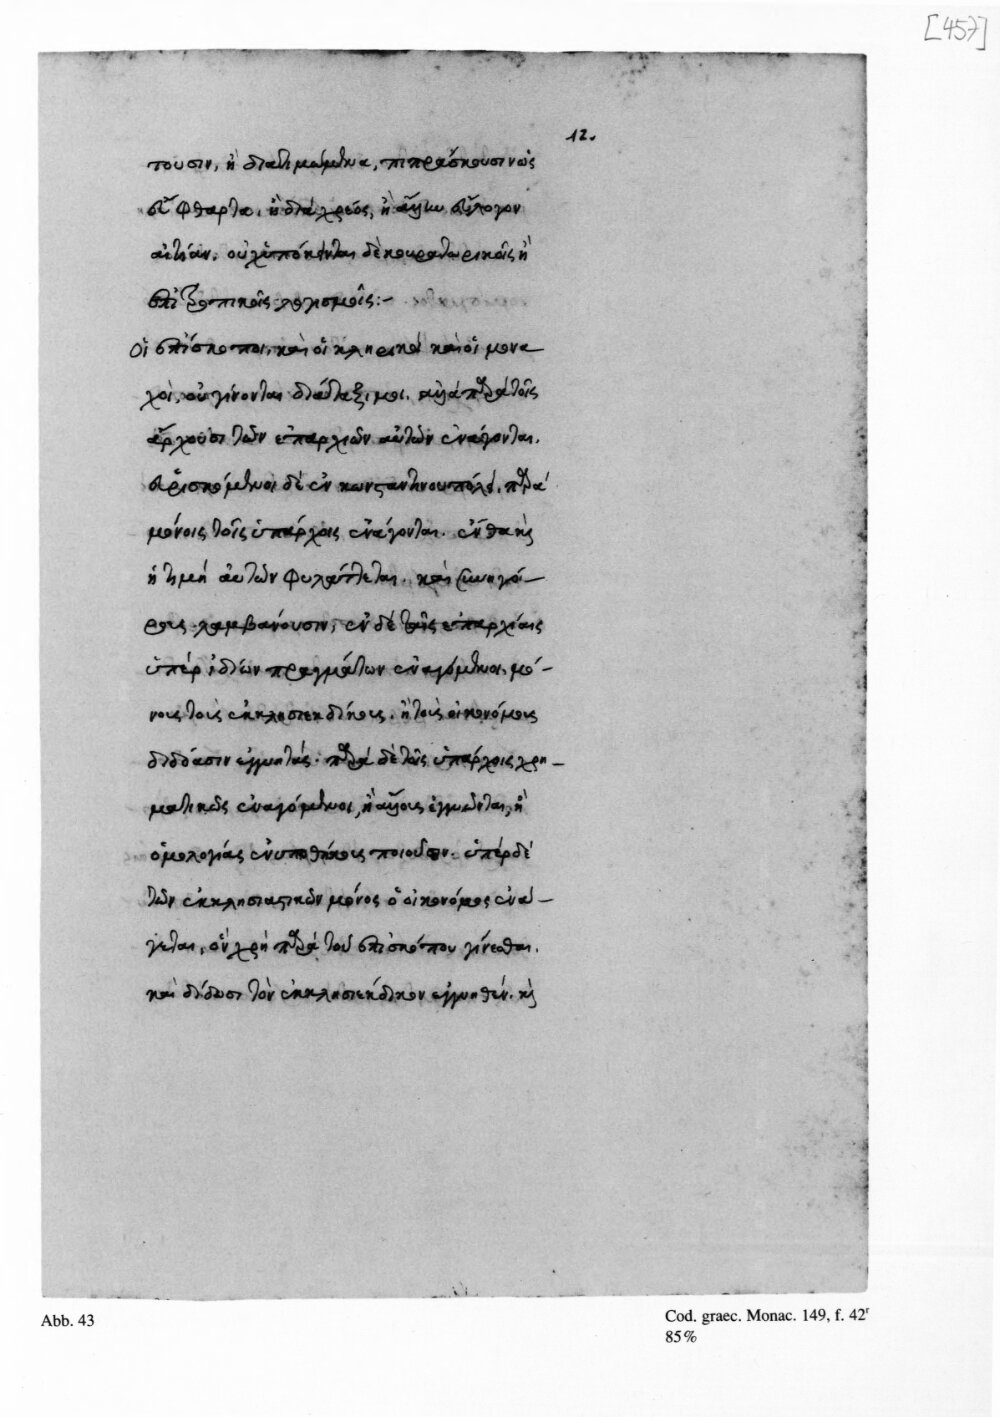 [457]
12.
τουσιν, ἢ διατιμώμενα, πιπράσκουσιν ὡς
εὔφθαρτα, ἢ διὰ χρέος, ἢ ἄλλην εὔλογον
αἰτίαν, οὐχ ὑπόκεινται δὲ κουρατωρικοῖς ἢ
ἐπιτροπικοῖς λογισμοῖς:-
Οἱ ἐπίσκοποι, καὶ οἱ κληρικοὶ καὶ οἱ μονα
χοὶ, οὐ γίνονται διάταξιμοι. ἀλλὰ παρὰ τοῖς
ἄρχουσι τῶν ἐπαρχιῶν αὐτῶν ἐνάγονται.
εὑρισκόμενοι δὲ ἐν κωνσταντινουπόλει, παρὰ
μόνοις τοῖς ὑπάρχοις ἐνάγονται. ἔνθα κỳ
ἡ τιμὴ αὐτῶν φυλάττεται. καὶ συνηγό-
ρους λαμβάνουσιν, ἐν δὲ ταῖς ἐπαρχίαις
ὑπὲρ ἰδίων πραγμάτων ἐναγόμενοι, μό-
νους τοὺς ἐκκλησιεκδίκους. ἢ τοὺς οἰκονόμους
διδόασιν ἐγγυητάς. παρὰ δὲ τοῖς ὑπάρχοις χρη-
ματικῶς ἐναγόμενοι, ἢ ἄλλους ἐγγυῶνται, ἢ
ὁμολογίας ἐνυποθήκους ποιοῦσιν. ὑπὲρ δὲ
τῶν ἐκκλησιαστικῶν μόνος ὁ οἰκονόμος ἐνά-
γεται, ὃν χρὴ παρὰ τοῦ ἐπισκόπου γίνεσθαι.
καὶ δίδωσι τὸν ἐκκλησιέκδικον ἐγγυηθέν. κỳ
Abb. 43
Cod. graec. Monac. 149, f. 42ʳ
85%